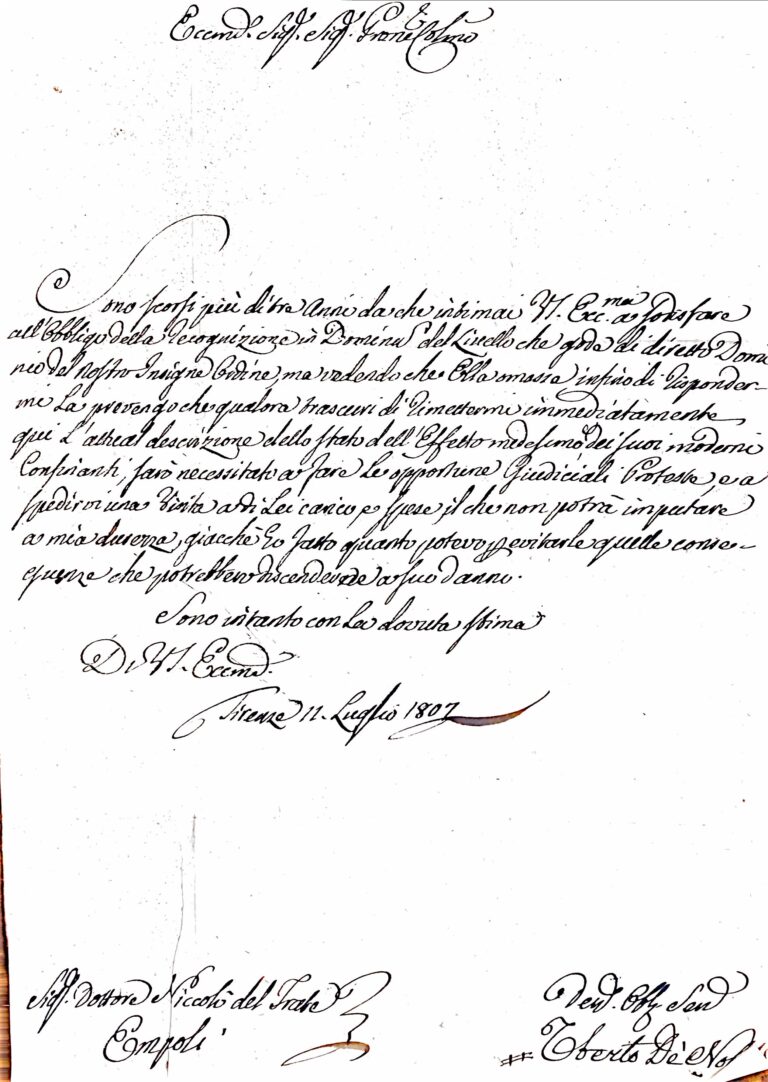 Eccmo. Sigr. Sigr. Prone Colmo
Sono scorsi più di tre Anni da che intimai V.S. Ecc.ma a sodisfare
all'Obbligo della recognizione in Dominus del Livello che gode di diretto Domi
nio del nostro Insigne Ordine, ma vedendo che Ella omesse infino di risponder=
mi La prevengo che qualora trascuri di rimettermi immediatamente
qui L'attual descrizione dello stato dell'Effetto medesimo, e dei suoi moderni
Confinanti, sarò necessitato a fare Le opportune Giudiciali Proteste, e a
spedirvi una Visita a di Lei carico, e spese, il che non potrà imputare
a mia durezza, giacchè ho fatto quanto potevo p. evitarle quelle conse=
guenze che potrebbero discendere a suo danno.
Sono intanto con La dovuta stima
Di V.S. Eccma.
Firenze 11. Luglio 1807
Sigr. Dottore Niccolò del Frate
Empoli
Dev. Obb. Serv
Uberto De' Nob